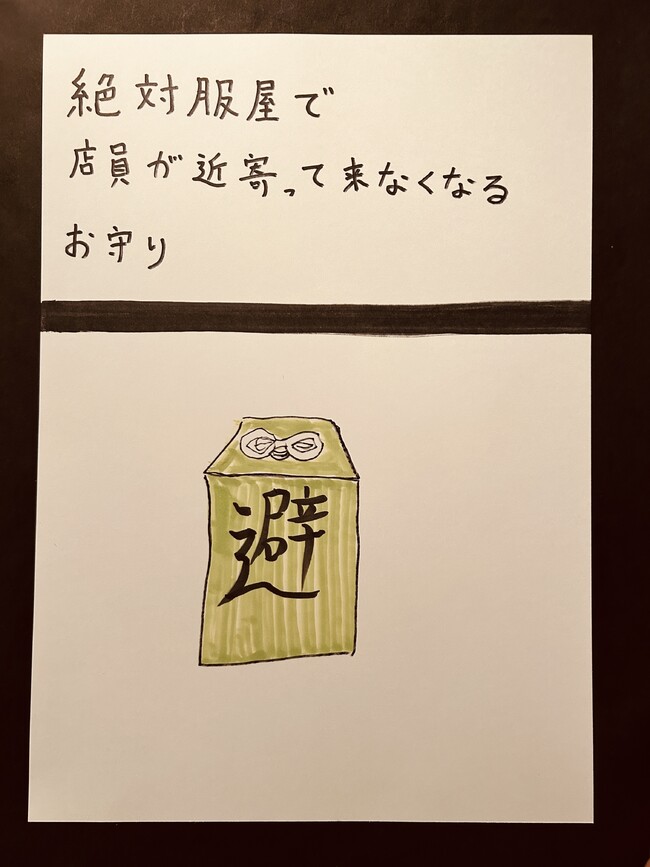 絶対服屋で
店員が近寄って来なくなる
お守り
避